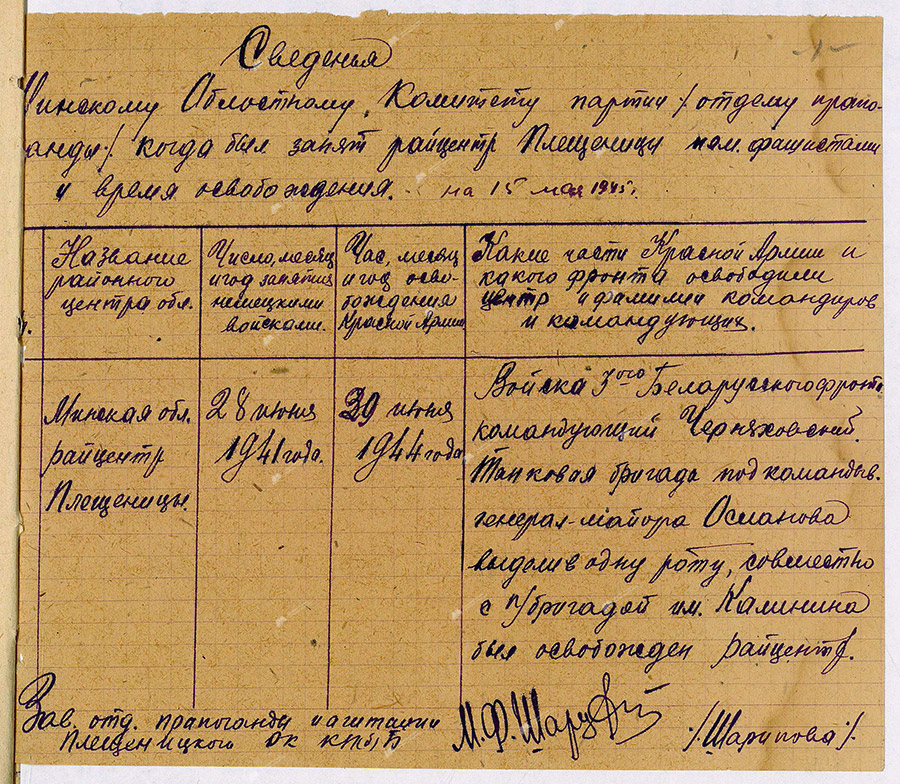 Сведенья
Минскому Областному Комитету партии /отделу пропо-
анды/. когда был занят райцентр Плещеницы нем. фашистами
и время освобождения. на 15 мая 1945г.
Название
районного
центра обл.
Число, месяц
и год занятия
немецкими
войсками.
Час, месяц
и год осво-
бождения
Красной Армии
Какие части Красной Армии и
какого фронта освободили
центр и фамилии командиров
и командующих.
Минская обл.
райцентр
Плещеницы.
28 июня
1941 года.
29 июня
1944 года
Войска 3го Беларусского фронта
командующий Черняховский.
Танковая бригада под командыв.
генерал-майора Османова
выделив одну роту, совместно
с п/бригадой им. Калинина
был освобожден райцентр.
Зав. отд. пропоганды и агитации
Плещеницкого РК КП(б)Б
М.Ф.
/Шарипова/.